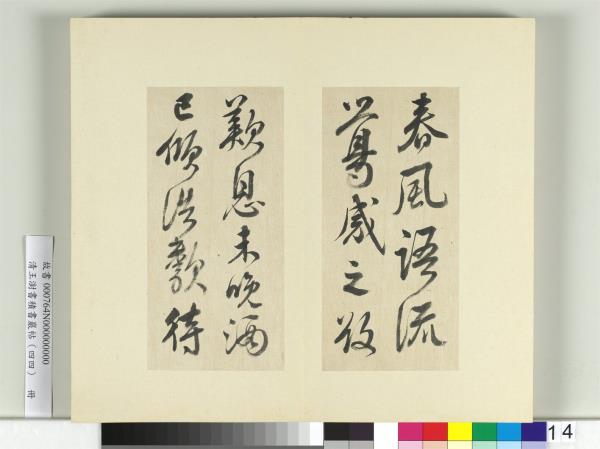 春風語流
鶯感之欲
歎息未晚酒
已傾浩歌待
故書 000764N000000000
清王澍書積書巖帖（四四） 冊
14